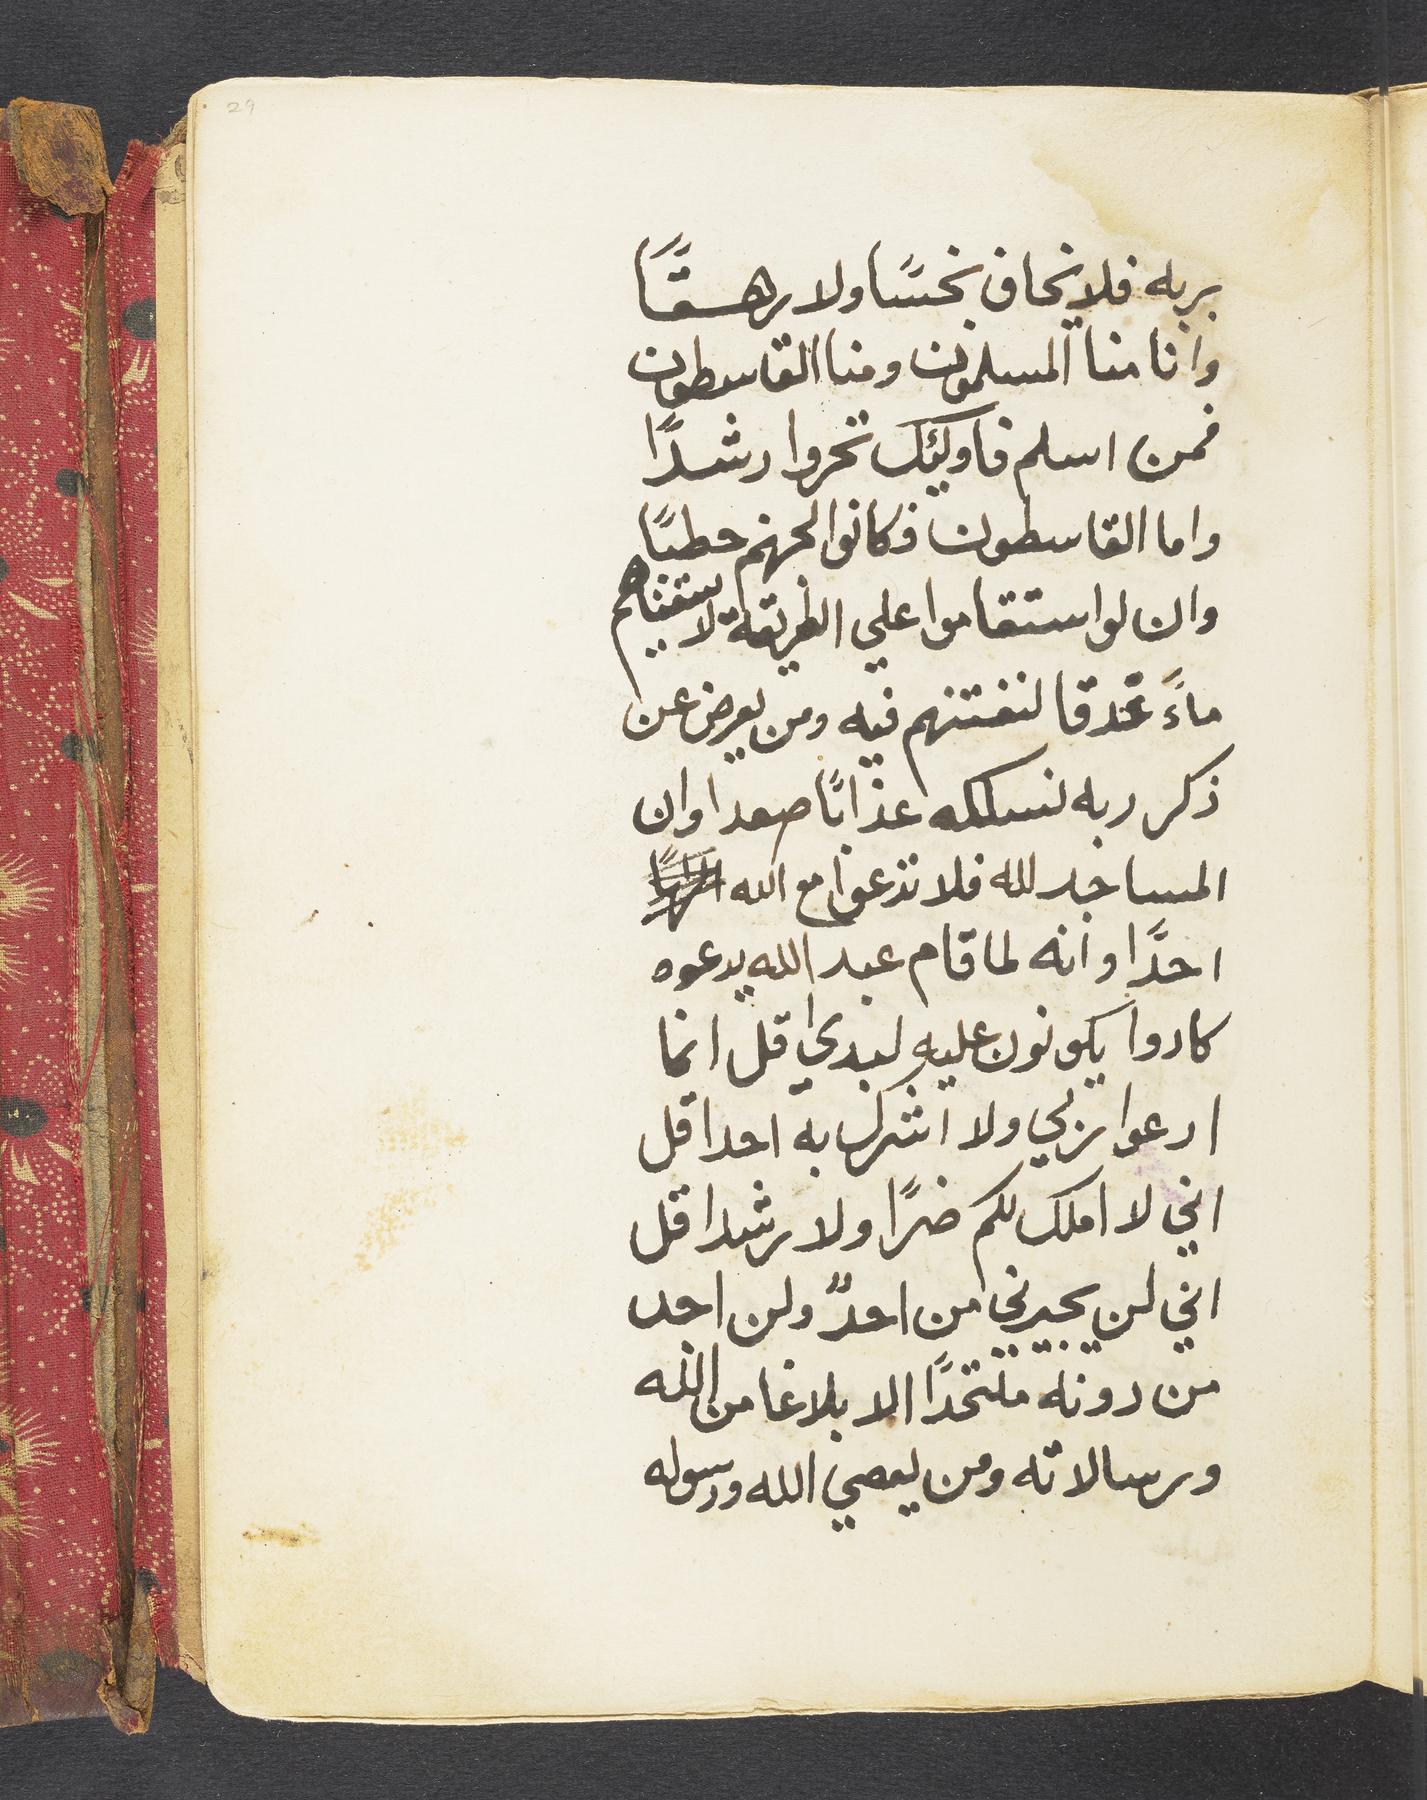 29
بربه فلا يخاف بخسًا ولا رهقًا
وانا منا المسلمون ومنا القاسطون
فمن اسلم فاوليئك تحروا رشدًا
واما القاسطون فكانوا لجهنم حطبًا
وان لو استقاموا علي الطريقة لاسقيناهم
ماءً غدقا لنفتنهم فيه ومن يعرض عن
ذكر ربه نسلكه عذابًا صعدا وان
المساجد لله فلا تدعوا مع الله
احدًا وانه لما قام عبد الله يدعوه
كادوا يكونون عليه لبدي قل انما
ادعوا ربي ولا اشرك به احدا قل
اني لا املك لكم ضرًا ولا رشدا قل
اني لن يجيرني من احدً ولن اجد
من دونه ملتحدًا الا بلاغا من الله
ورسالاته ومن يعصي الله ورسوله